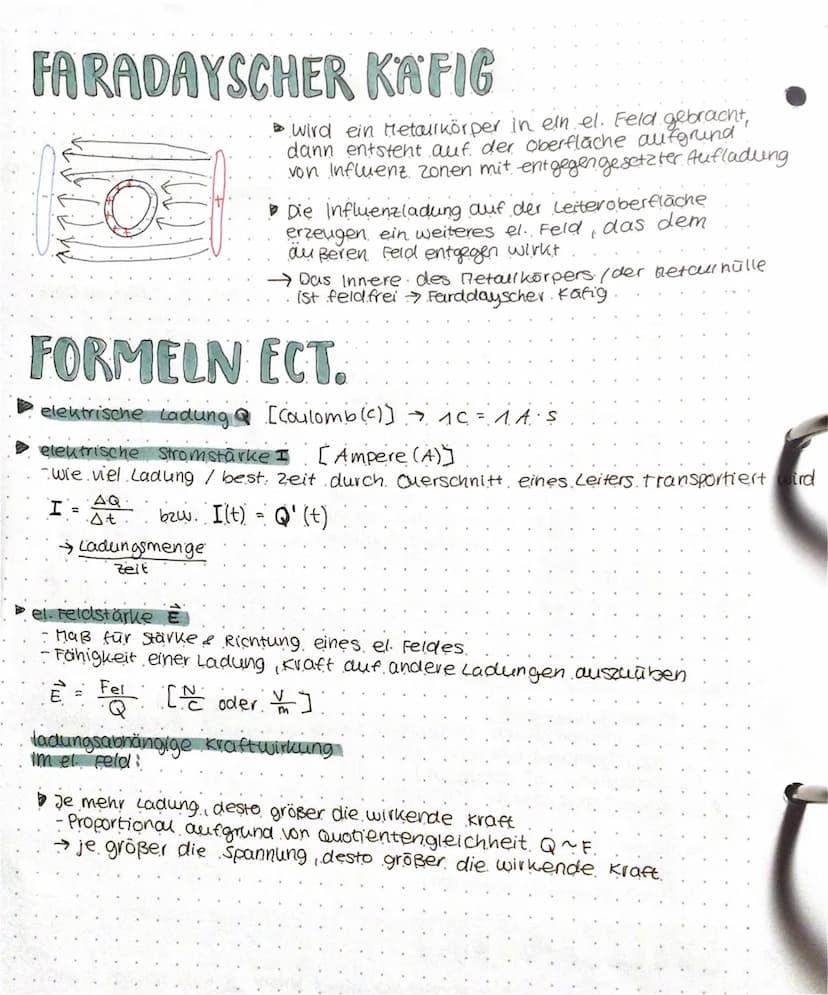 FARADAYSCHER KÄFIG
▶ wird ein Metallkörper in ein el. Feld gebracht,
dann entsteht auf der Oberfläche aufgrund
von Influenz Zonen mit entgegengesetzter Aufladung
▶ Die Influenzladung auf der Leiteroberfläche
erzeugen ein weiteres el. Feld, das dem
äußeren Feld entgegen wirkt
→ Das Innere des Metallkörpers / der Metallhülle
ist feldfrei → Farddayscher Käfig
- +
FORMELN ECT.
▶ elektrische Ladung Q [Coulomb (C)] → 1C = 1 A · s
▶ elektrische Stromstärke I [Ampere (A)]
- wie viel Ladung / best. Zeit durch Querschnitt eines Leiters transportiert wird
I = ΔQ/Δt bzw. I(t) = Q'(t)
→ Ladungsmenge
Zeit
▶ el. Feldstärke E⃗
- Maß für Stärke & Richtung eines el. Feldes
- Fähigkeit einer Ladung, Kraft auf andere Ladungen auszuüben
E⃗ = Fel/Q [N/C oder V/m]
ladungsabhängige Kraftwirkung
im el. Feld:
▶ je mehr Ladung, desto größer die wirkende Kraft
- Proportional aufgrund von Quotientengleichheit Q ~ F
→ je größer die Spannung, desto größer die wirkende Kraft